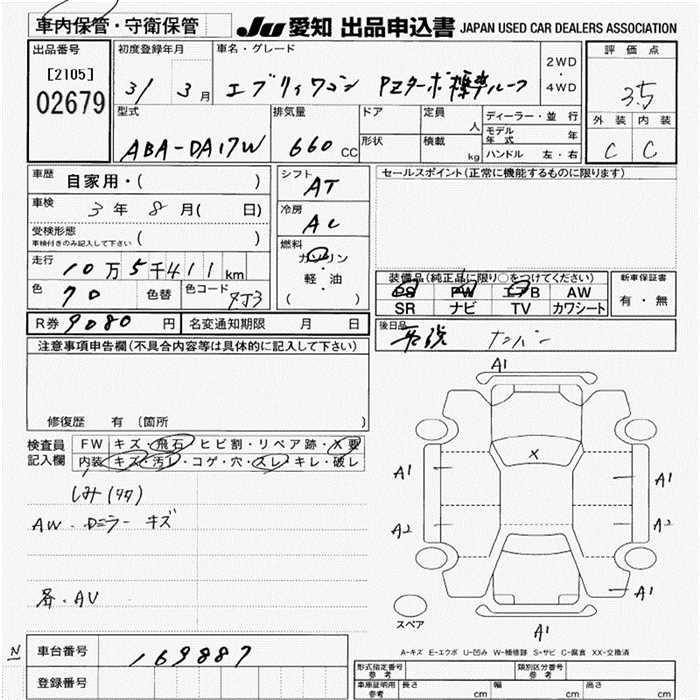 車内保管・守衛保管
JU 愛知 出品申込書 JAPAN USED CAR DEALERS ASSOCIATION
出品番号 初度登録年月 車名・グレード 2WD・4WD 評価点
[2105]
02679 31 3月 エブリィワゴン PZターボ標準ルーフ 3.5
型式 排気量 ドア 定員 人 ディーラー・並行 外装 内装
モデル年式 年
ABA-DA17W 660 CC 形状 積載 kg ハンドル 左・右 C C
車歴 自家用・( ) シフト AT セールスポイント(正常に機能するものに限ります)
車検 3年 8月( 日) 冷房 AC
受検形態
車検付きのみ記入して下さい ( ) 燃料 ガソリン
走行 10万5千411km 軽・油 装備品(純正品に限り○をつけてください) 新車保証書
色 70 色替 色コード ZJ3 ( ) PS PW エアB AW 有・無
SR ナビ TV カワシート
R券 9080円 名変通知期限 月 日 後日品
ナンバン
注意事項申告欄(不具合内容等は具体的に記入して下さい)
修復歴 有〔箇所 〕
検査員記入欄 FW キズ・飛石・ヒビ割・リペア跡・X要
内装 キズ・汚レ・コゲ・穴・スレ・キレ・破レ
A1
X
A1 A1
A2 A2
A1
A1
シミ(タタ)
AW・Dミラー キズ
スペア
・AV
A-キズ E-エクボ U-凹み W-補修跡 S-サビ C-腐食 XX-交換済
N 車台番号 169887
登録番号
形式指定番号 参考 類別区分番号 参考
車庫証明用 参考 長さ cm 幅 cm 高さ cm